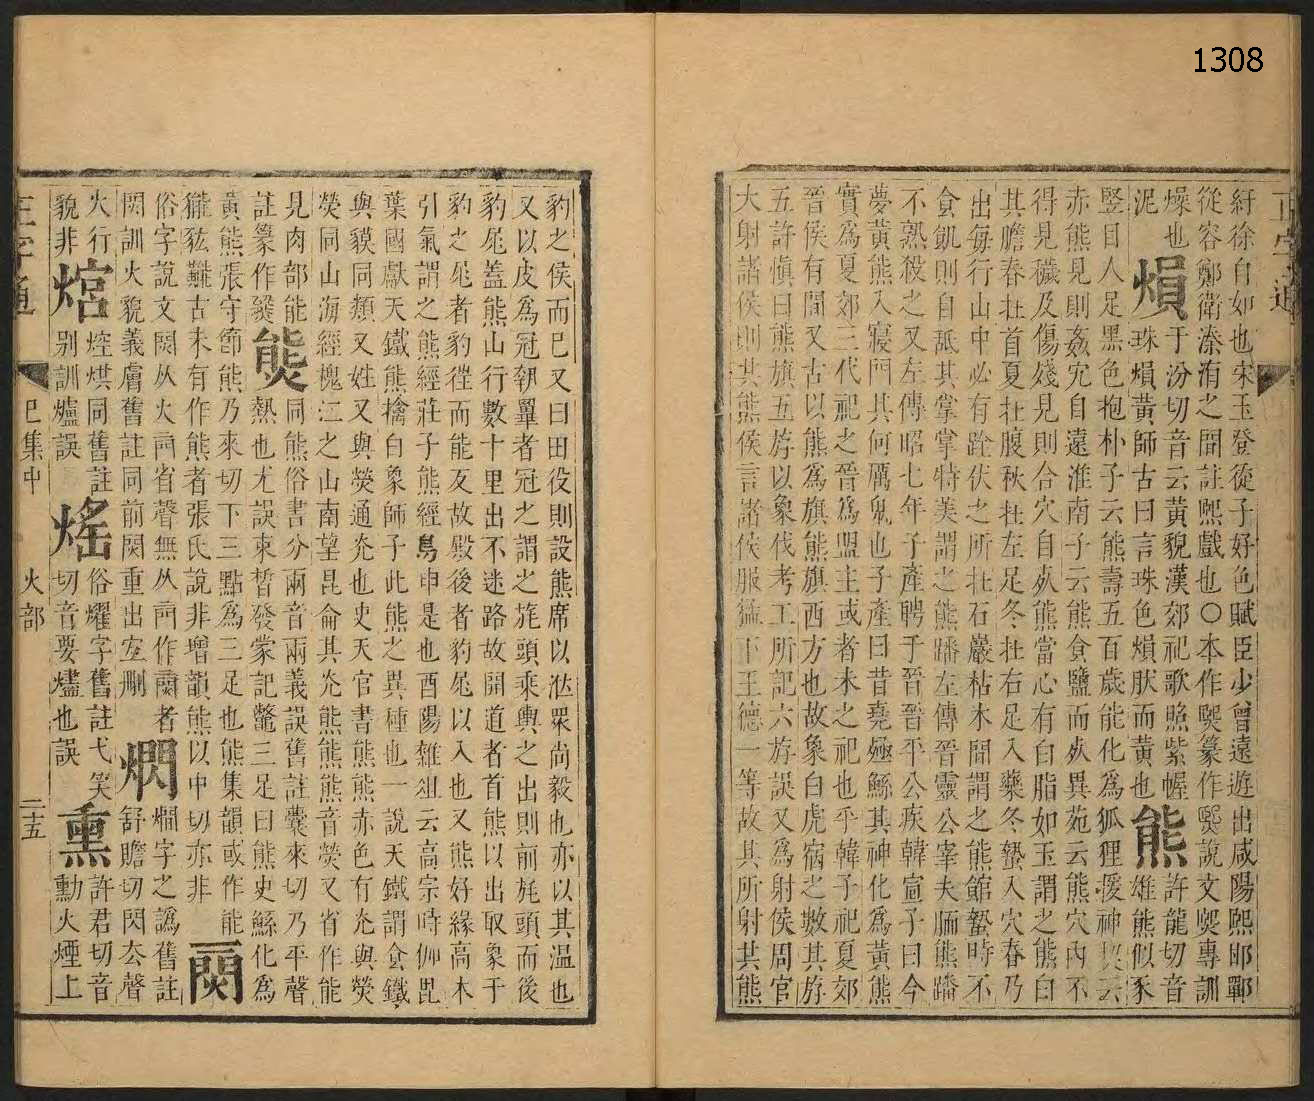 1308
正字通
紆徐自如也宋玉登徒子好色賦臣少曾遠遊出咸陽熙邯鄲
從容鄭衛溱洧之間註熙戲也○本作㷩篆作㷩說文㷩專訓
燥也 于汾切音云黃貌漢郊祀歌照紫幄 許龍切音
泥 熉 珠熉黃師古曰言珠色熉肰而黃也 熊 雄熊似豕
豎目人足黑色抱朴子云熊壽五百歲能化爲狐狸援神契云
赤熊見則姦宄自遠淮南子云熊食鹽而死異苑云熊穴內不
得見穢及傷殘見則合穴自死熊當心有白脂如玉謂之熊白
其膽春在首夏在腹秋在左足冬在右足入藥冬蟄入穴春乃
出每行山中必有跧伏之所在石巖枯木間謂之熊館蟄時不
食飢則自舐其掌掌特美謂之熊蹯左傳晉靈公宰夫胹熊蹯
不熟殺之又左傳昭七年子產聘于晉晉平公疾韓宣子曰今
夢黃熊入寢門其何厲鬼也子產曰昔堯殛鯀其神化爲黃熊
實爲夏郊三代祀之晉爲盟主或者未之祀也乎韓子祀夏郊
晉侯有間又古以熊爲旗熊旗西方也故象白虎宿之數其斿
五許愼曰熊旗五斿以象伐考工所記六斿誤又爲射侯周官
大射諸侯則共熊侯言諸侯服猛下王德一等故其所射共熊
豹之侯而已又曰田役則設熊席以涖眾尚毅也亦以其温也
又以皮爲冠執罼者冠之謂之旄頭乘輿之出則前旄頭而後
豹尾蓋熊山行數十里出不迷路故開道者首熊以出取象于
豹之尾者豹徃而能反故殿後者豹尾以入也又熊好緣高木
引氣謂之熊經莊子熊經鳥申是也酉陽雜俎云高宗時伽毘
葉國獻天鐵熊擒白象師子此熊之異種也一說天鐵謂食鐵
與貘同類又姓又與熒通光也史天官書熊熊赤色有光與熒
熒同山海經槐江之山南望昆侖其光熊熊熊音熒又省作能
見肉部能 同熊俗書分兩音兩義誤舊註囊來切乃平聲
註篆作𤎭 熋 熱也尤誤束晳發蒙記鼈三足曰熊史鯀化爲
黃熊張守節熊乃來切下三點爲三足也熊集韻或作能
獾㹡難古未有作熊者張氏說非增韻熊以中切亦非 㷳
俗字說文閦从火𠕋省聲無从𠕋作䦧者 燗字之譌舊註
閦訓火貌義膚舊註同前閦重出宜刪 焛 舒贍切閃去聲
火行 焢烘同舊註 俗燿字舊註弋笑 許君切音
貌非 㷄 別訓爐誤 熎 切音要燼也誤 熏 勳火煙上
正字通
巳集中
火部
二十五